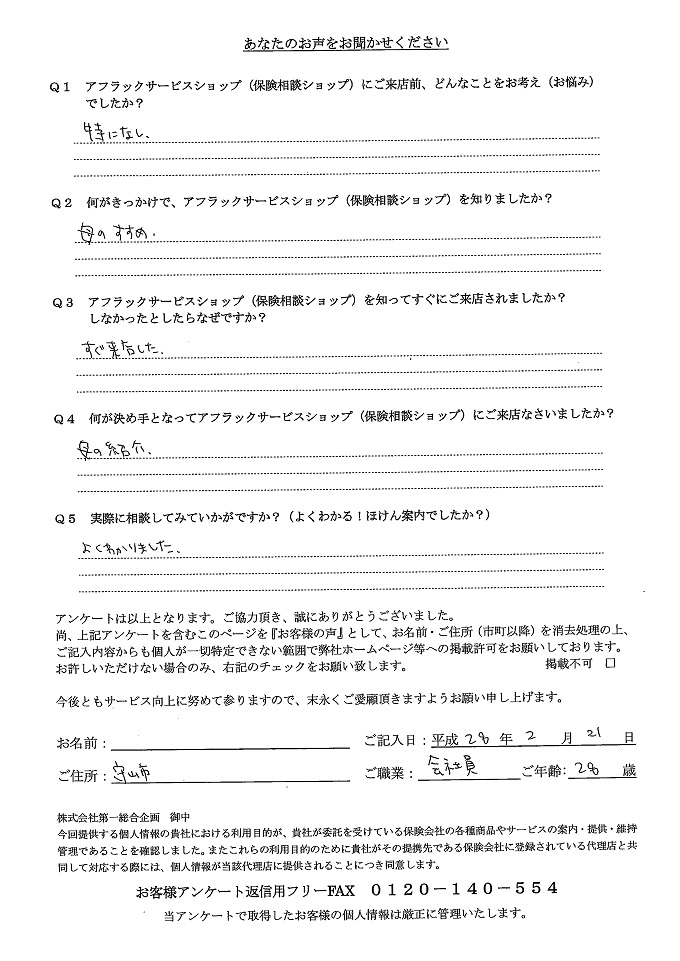 あなたのお声をお聞かせください
Q1 アフラックサービスショップ（保険相談ショップ）にご来店前、どんなことをお考え（お悩み）
でしたか？
特になし、
Q2 何がきっかけで、アフラックサービスショップ（保険相談ショップ）を知りましたか？
母のすすめ.
Q3 アフラックサービスショップ（保険相談ショップ）を知ってすぐにご来店されましたか？
しなかったとしたらなぜですか？
すぐ来店した.
Q4 何が決め手となってアフラックサービスショップ（保険相談ショップ）にご来店なさいましたか？
母の紹介、
Q5 実際に相談してみていかがですか？（よくわかる！ほけん案内でしたか？）
よくわかりました、
アンケートは以上となります。ご協力頂き、誠にありがとうございました。
尚、上記アンケートを含むこのページを『お客様の声』として、お名前・ご住所（市町以降）を消去処理の上、
ご記入内容からも個人が一切特定できない範囲で弊社ホームページ等への掲載許可をお願いしております。
お許しいただけない場合のみ、右記のチェックをお願い致します。 掲載不可 □
今後ともサービス向上に努めて参りますので、末永くご愛顧頂きますようお願い申し上げます。
お名前： ご記入日：平成 28 年 2 月 21 日
ご住所：守山市 ご職業：会社員 ご年齢：28 歳
株式会社第一総合企画 御中
今回提供する個人情報の貴社における利用目的が、貴社が委託を受けている保険会社の各種商品やサービスの案内・提供・維持
管理であることを確認しました。またこれらの利用目的のために貴社がその提携先である保険会社に登録されている代理店と共
同して対応する際には、個人情報が当該代理店に提供されることにつき同意します。
お客様アンケート返信用フリーFAX 0120－140－554
当アンケートで取得したお客様の個人情報は厳正に管理いたします。